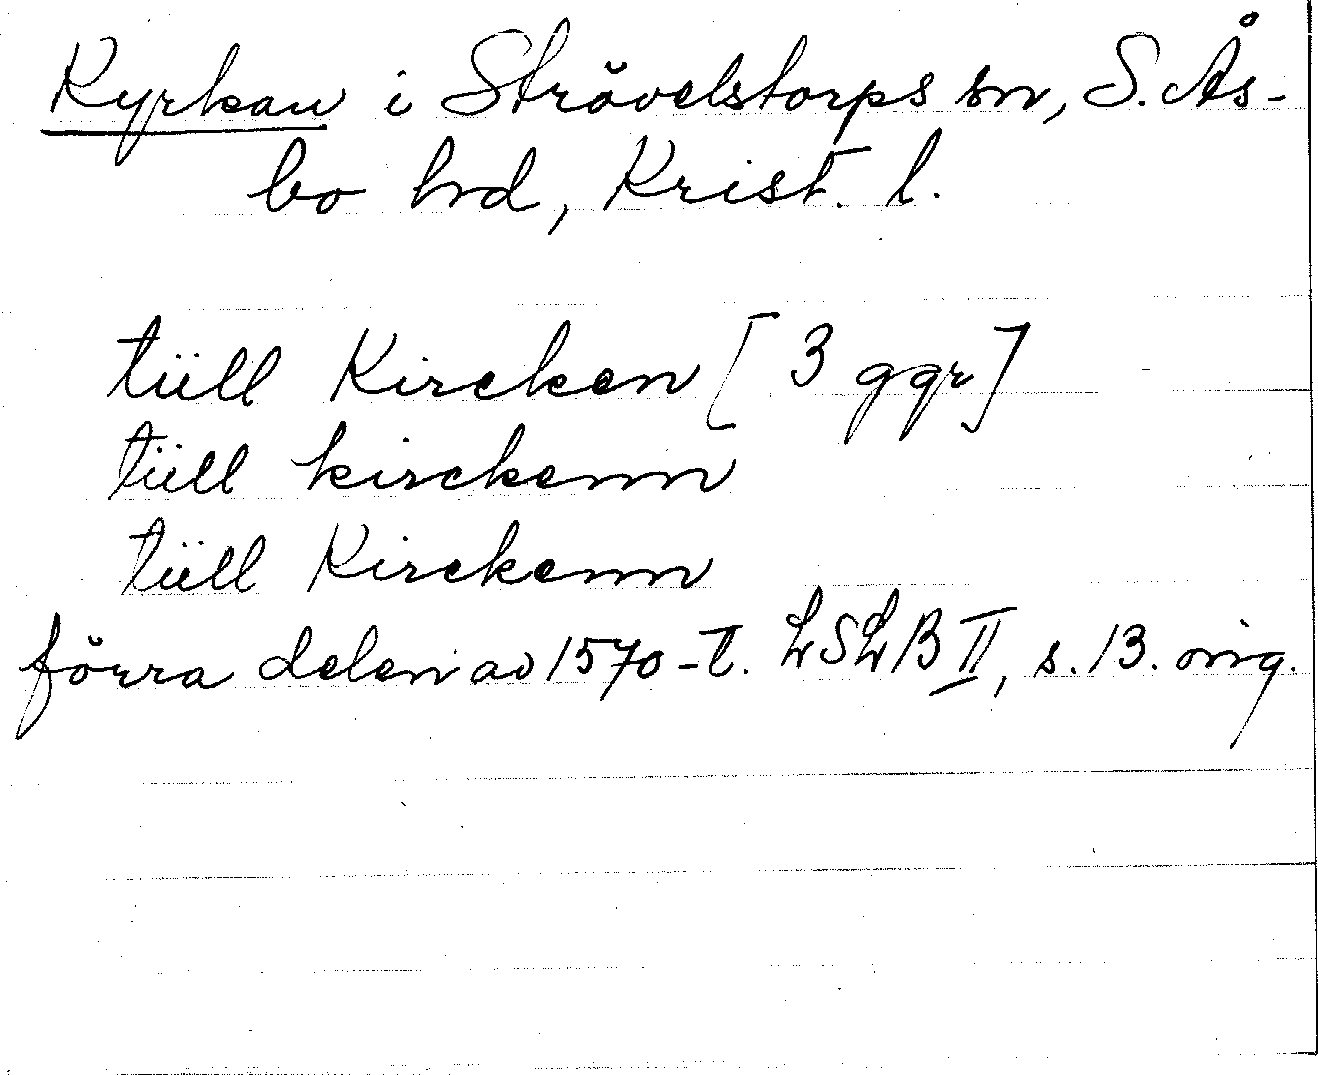 Kyrkan i Strövelstorps sn, S. Ås-
bo hd, Krist. l.
tüll Kircken [3 ggr]
tüll kirckenn
tüll Kirckenn
förra delen av 1570-t. LSLB II, s. 13. orig.